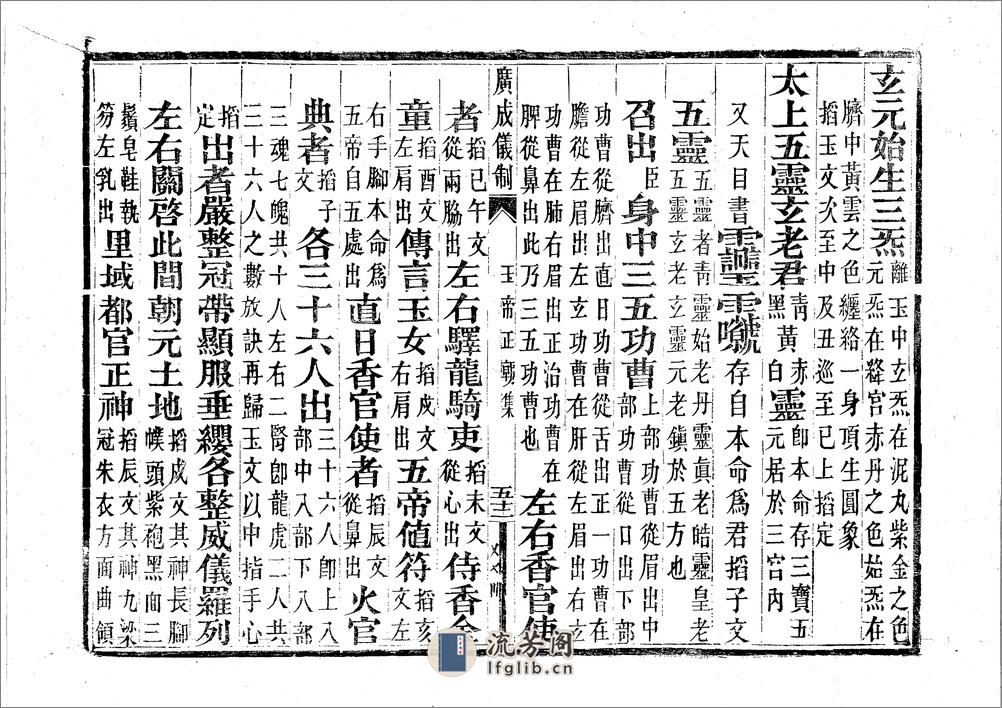 玄元始生三炁離玉中玄炁在泥丸紫金之色元炁在絳宮赤丹之色始炁在
臍中黃雲之色纏絡一身頂生圓象搯玉文次至中及丑巡至巳上搯定
太上五靈玄老君靑赤黑黃白靈卽本命存三寶五元居於三宮內
又天目書存自本命爲君搯子文
五靈五靈者靑靈始老丹靈眞老皓靈皇老五靈玄老玄靈元老鎮於五方也
召出臣身中三五功曹上部功曹從眉出中部功曹從口出下部
功曹從臍出直日功曹從舌出正一功曹在膽從左眉出左玄功曹在肝從左眉出右玄
功曹在肺右眉出正治功曹在脾從鼻出此乃三五功曹也左右香官使
廣成儀制 玉帝正朝集 五十二
者搯巳午文從兩脇出左右驛龍騎吏搯未文從心出侍香金
童搯酉文左肩出傳言玉女搯戍文右肩出五帝值符搯亥文左
右手腳本命爲五帝自五處出直日香官使者搯辰文從鼻出火官
典者搯子文各三十六人出三十六人卽上八部中八部下八部
三魂七魄共十八左右二腎卽龍虎二人共三十六人之數放訣再歸玉文以中指手心
搯定出者嚴整冠帶顯服垂纓各整威儀羅列
左右關啓此間朝元土地搯戍文其神長脚幞頭紫袍黑面三
鬚皂鞋執笏左乳出里域都官正神搯辰文其神九梁冠朱衣方面曲領
流芳閣
lfglib.cn